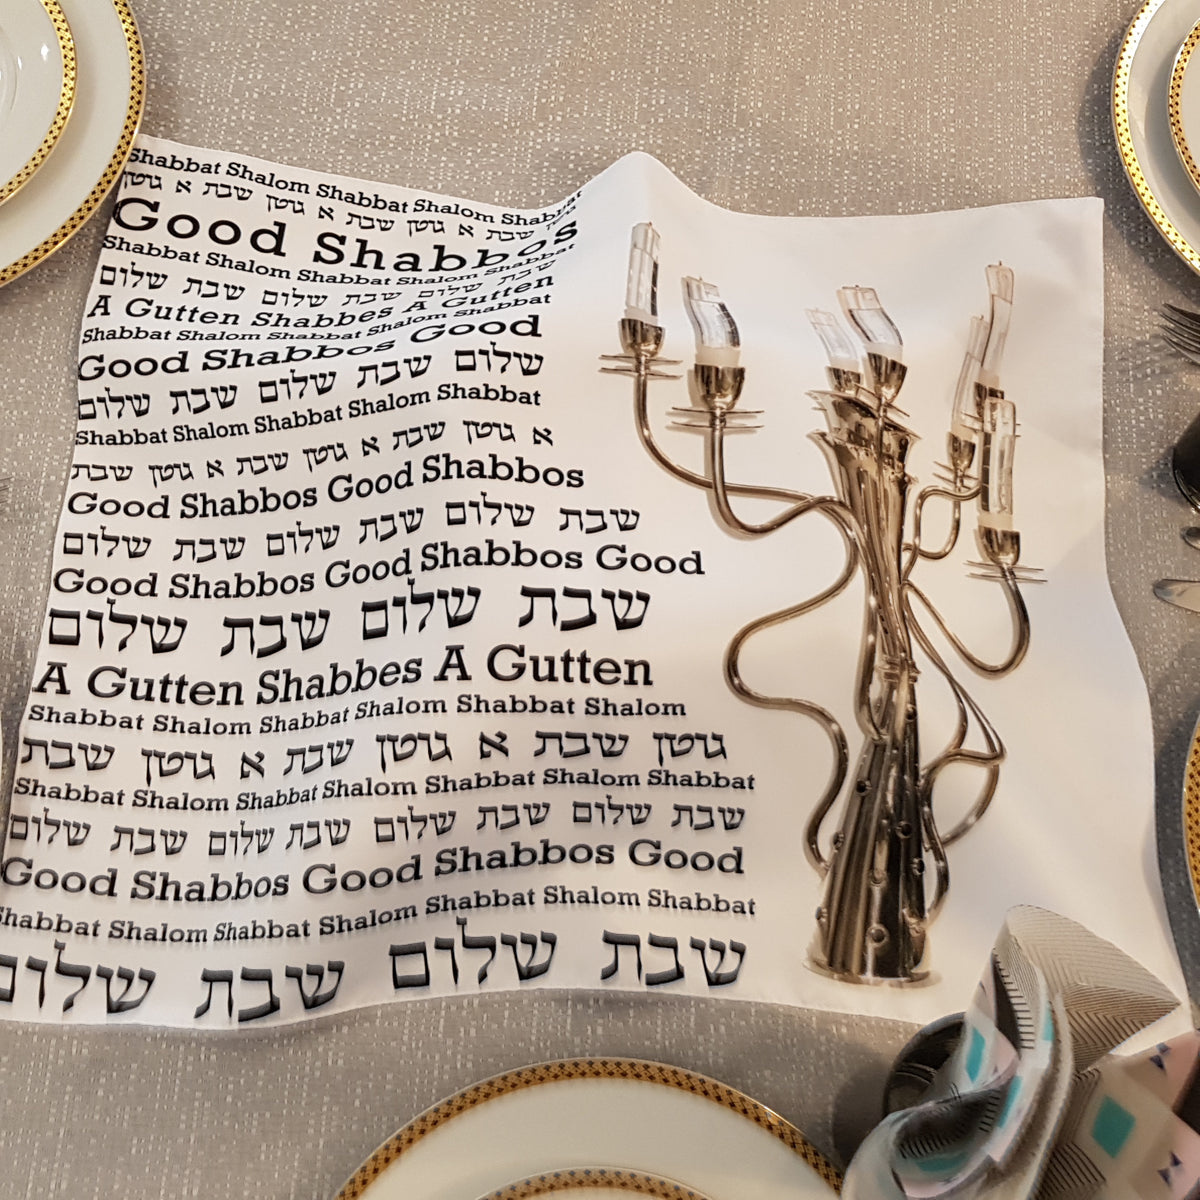 Shabbat Shalom Shabbat Shalom Shabbat
גוטן א שבת גוטן א שבת גוטן א שבת גוטן
Good Shabbos
Shabbat Shalom Shabbat Shalom Shabbat
שבת שלום שבת שלום שבת שלום
A Gutten Shabbes A Gutten
Shabbat Shalom Shabbat Shalom Shabbat
Good Shabbos Good
שלום שבת שלום שבת שלום
Shabbat Shalom Shabbat Shalom Shabbat
א גוטן שבת א גוטן שבת א גוטן שבת
Good Shabbos Good Shabbos
שבת שלום שבת שלום שבת שלום
Good Shabbos Good Shabbos Good
שבת שלום שבת שלום
A Gutten Shabbes A Gutten
Shabbat Shalom Shabbat Shalom Shabbat Shalom
גוטן שבת א גוטן שבת א גוטן שבת
Shabbat Shalom Shabbat Shalom Shabbat Shalom Shabbat
שבת שלום שבת שלום שבת שלום שבת שלום
Good Shabbos Good Shabbos Good
Shabbat Shalom Shabbat Shalom Shabbat Shalom Shabbat
שבת שלום שבת שלום